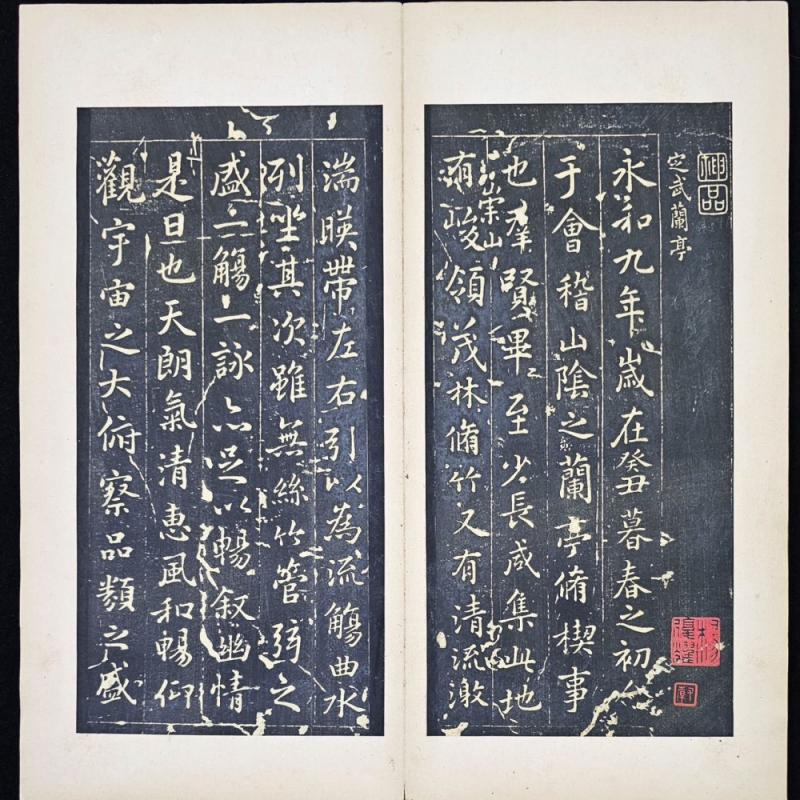 神品
定武蘭亭
永和九年歲在癸丑暮春之初
于會稽山陰之蘭亭脩稧事
也羣賢畢至少長咸集此地
有崇山峻領茂林脩竹又有清流激
湍暎帶左右引以為流觴曲水
列坐其次雖無絲竹管弦之
盛一觴一詠亦足以暢叙幽情
是日也天朗氣清惠風和暢仰
觀宇宙之大俯察品類之盛